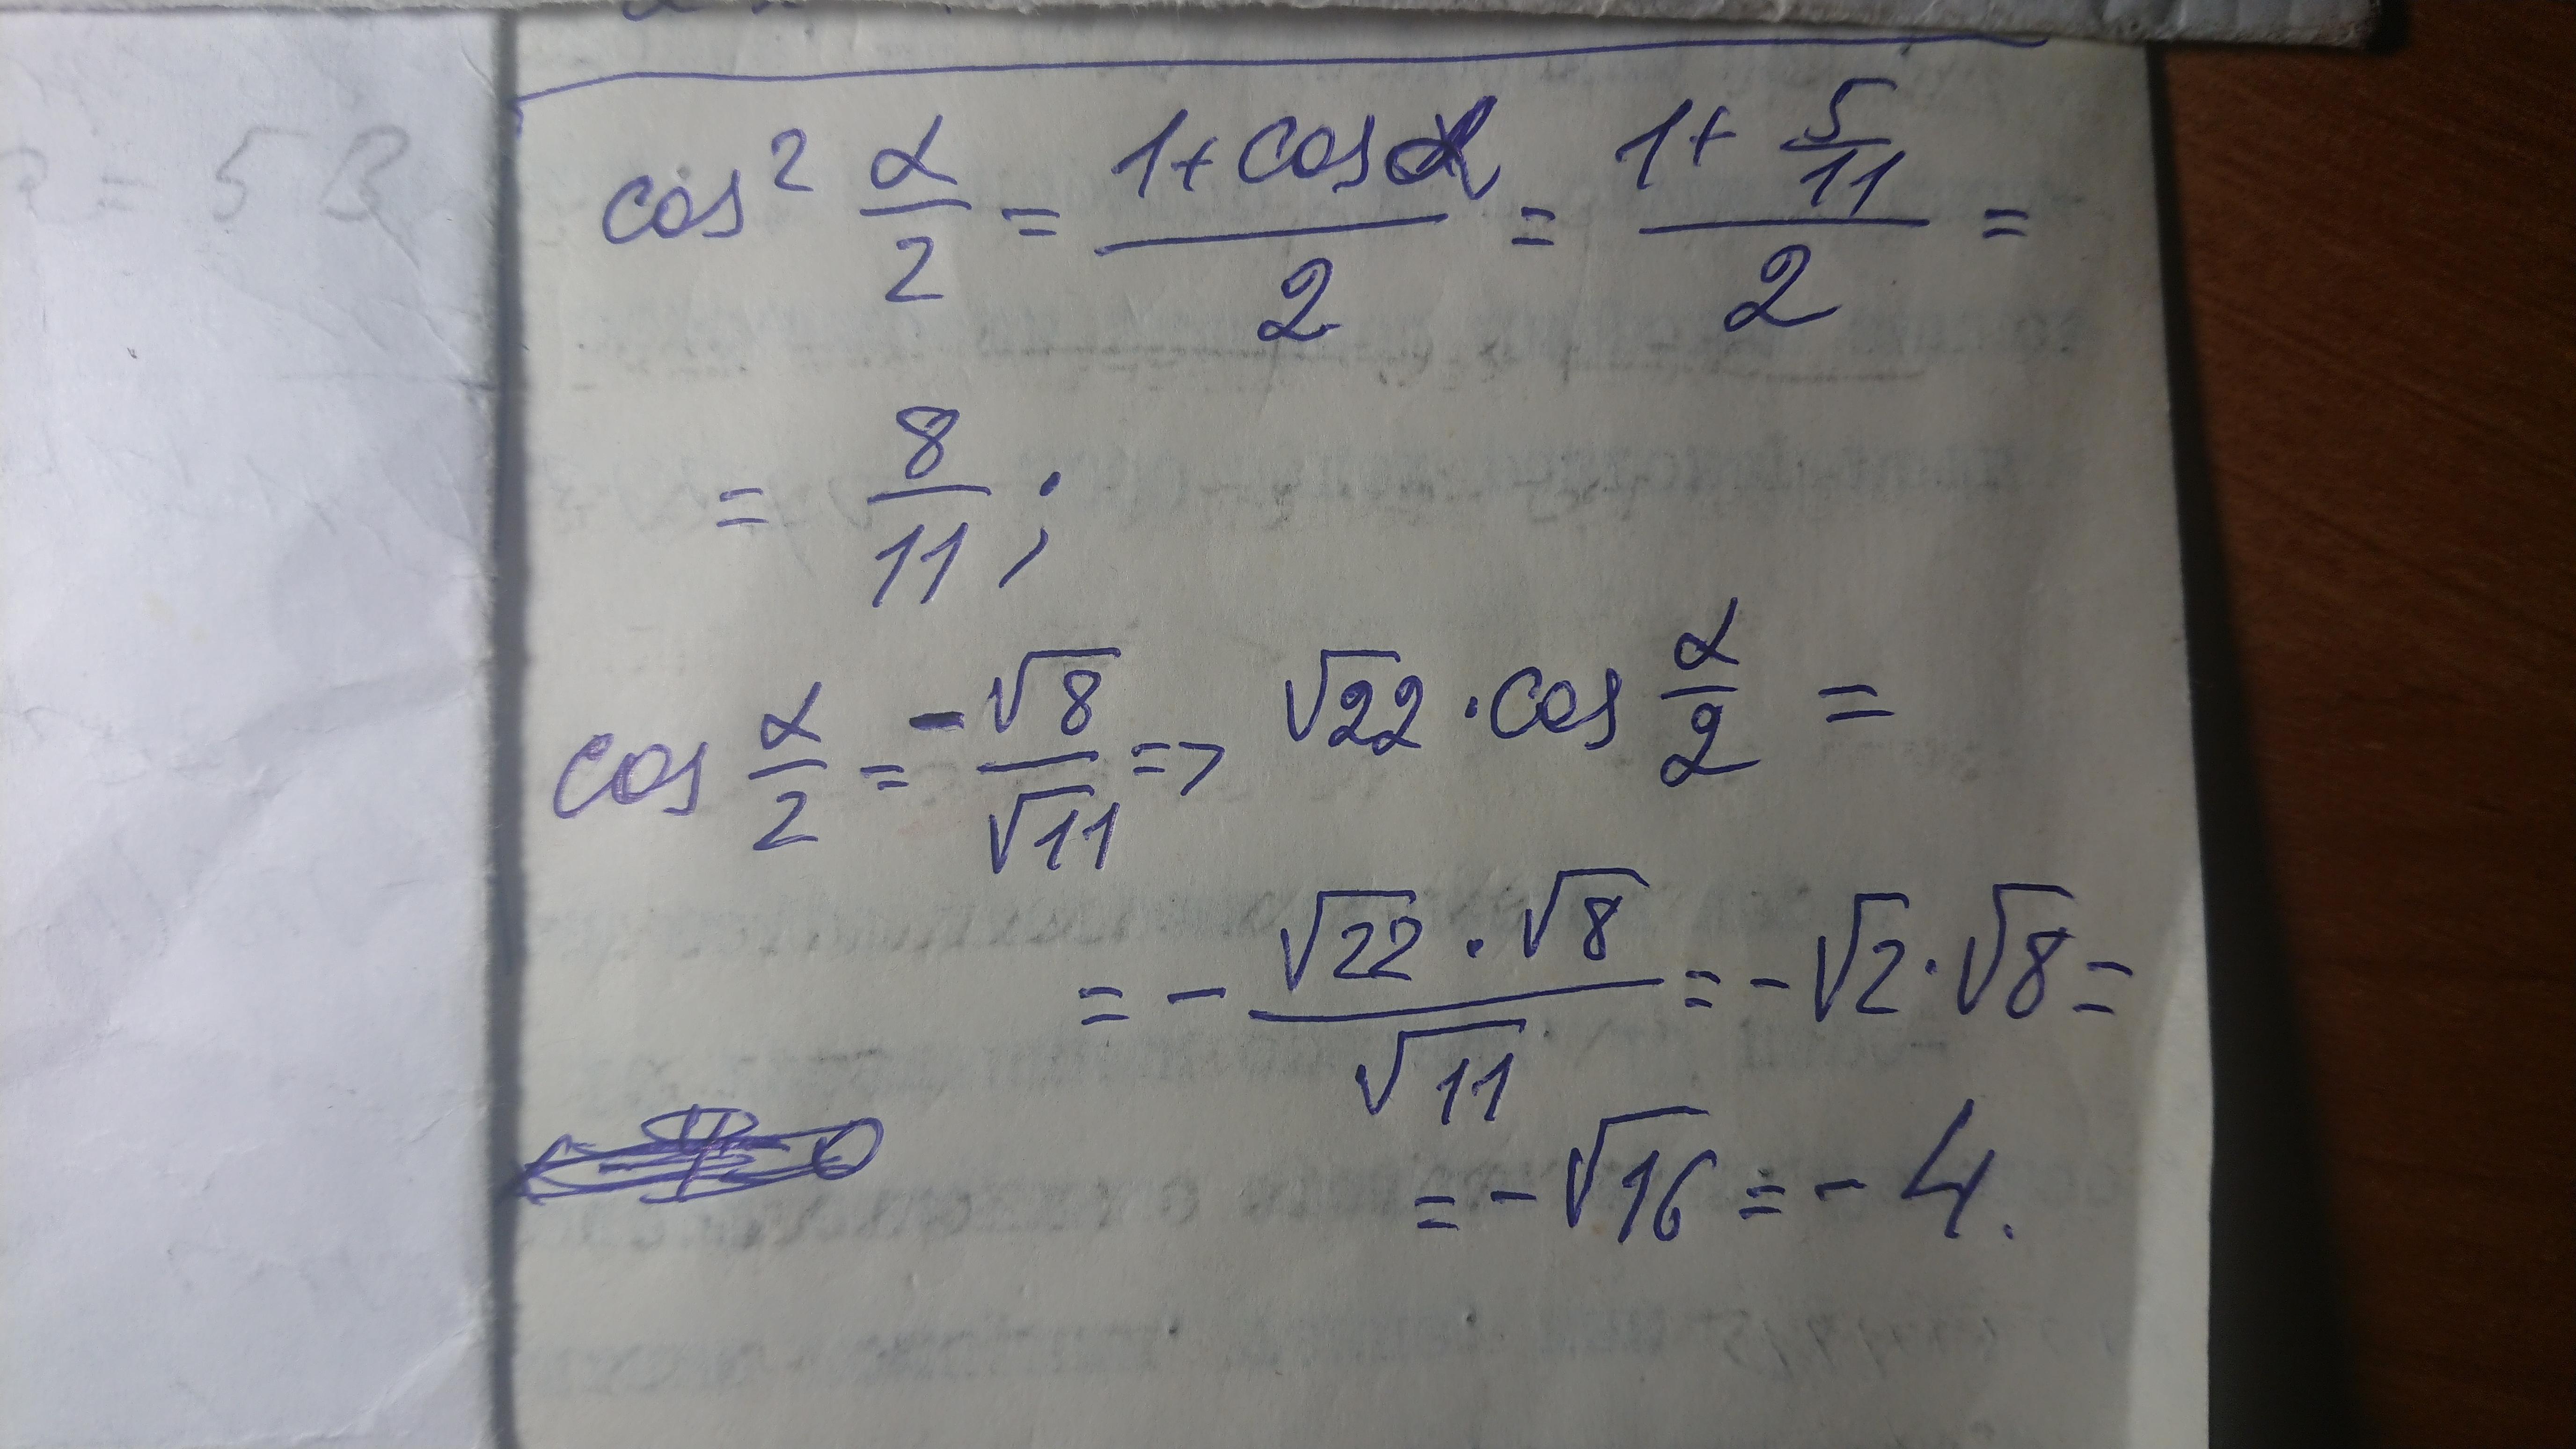 cos² α/2 = (1+cosα)/2 = (1+ 5/11)/2 =
= 8/11 ;
cos α/2 = -√8/√11 => √22 · cos α/2 =
= - (√22 · √8)/√11 = -√2 · √8 =
= -√16 = -4.
= 5